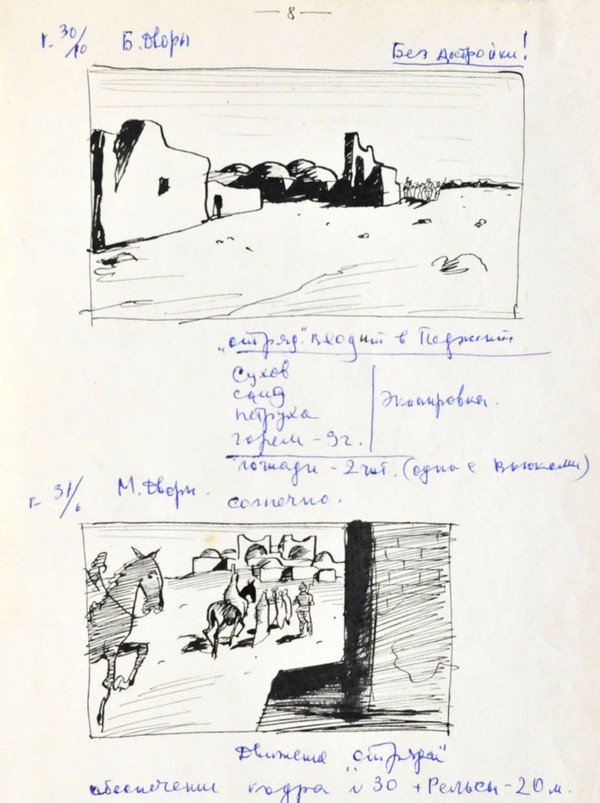 — 8 —
г. 30/10 Б. Дворы
Без достройки!
"отряд" входит в Педжент
Сухов
саид
петруха
гарем - 9г.
Экипировка.
лошади - 2 шт. (одна с вьюками)
г. 31/6 М. Дворы.
солнечно.
Движение "отряда"
обеспечение кадра № 30 + Рельсы - 20 м.